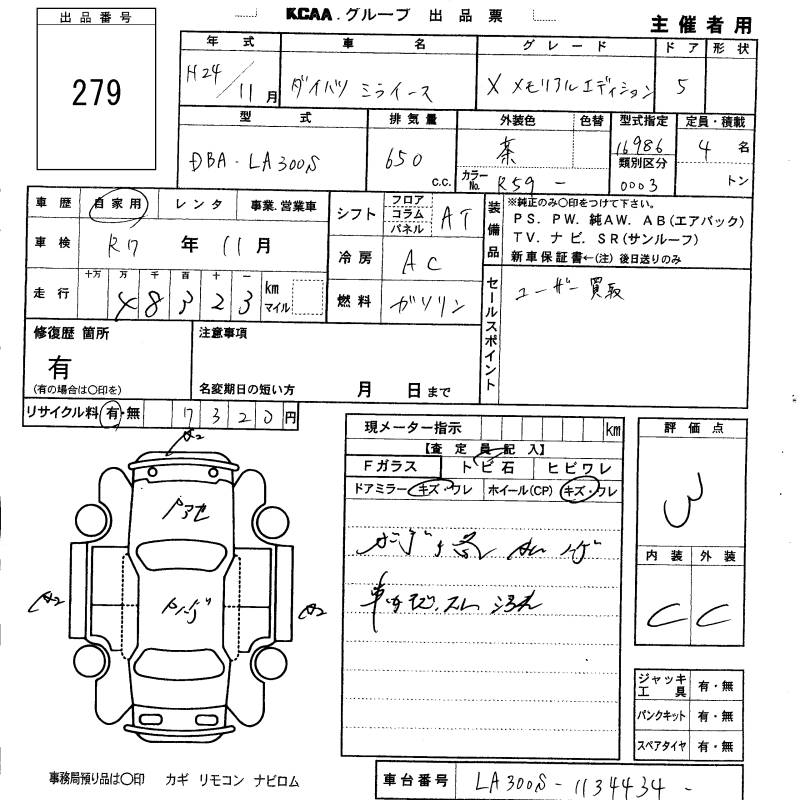 KCAA.グループ 出品票
主催者用
出品番号
279
年式 車名 グレード ドア 形状
H24/11月 ダイハツ ミライース X メモリアルエディション 5
型式 排気量 外装色 色替 型式指定 定員・積載
DBA-LA300S 650 c.c. 茶 16986 4名
カラーNo. R59 - 類別区分 0003 トン
車歴 自家用 レンタ 事業.営業車
車検 R7年11月
走行 十万 万 千 百 十 一 km マイル
48323
シフト フロア コラム パネル AT
冷房 AC
燃料 ガソリン
装備品 ※純正のみ〇印をつけて下さい。
PS. PW. 純AW. AB(エアバック)
TV. ナビ. SR(サンルーフ)
新車保証書←(注) 後日送りのみ
セールスポイント ユーザー買取
修復歴 箇所 注意事項
有
(有の場合は〇印を) 名変期日の短い方 月 日まで
リサイクル料 有・無 7320円
現メーター指示 km
【査定員記入】
Fガラス トビ石 ヒビワレ
ドアミラー キズ・ワレ ホイール(CP) キズ・ワレ
評価点
3
内装 外装
C C
A2
A2 A2
ジャッキ工具 有・無
パンクキット 有・無
スペアタイヤ 有・無
事務局預り品は〇印 カギ リモコン ナビロム
車台番号 LA300S-1134434-